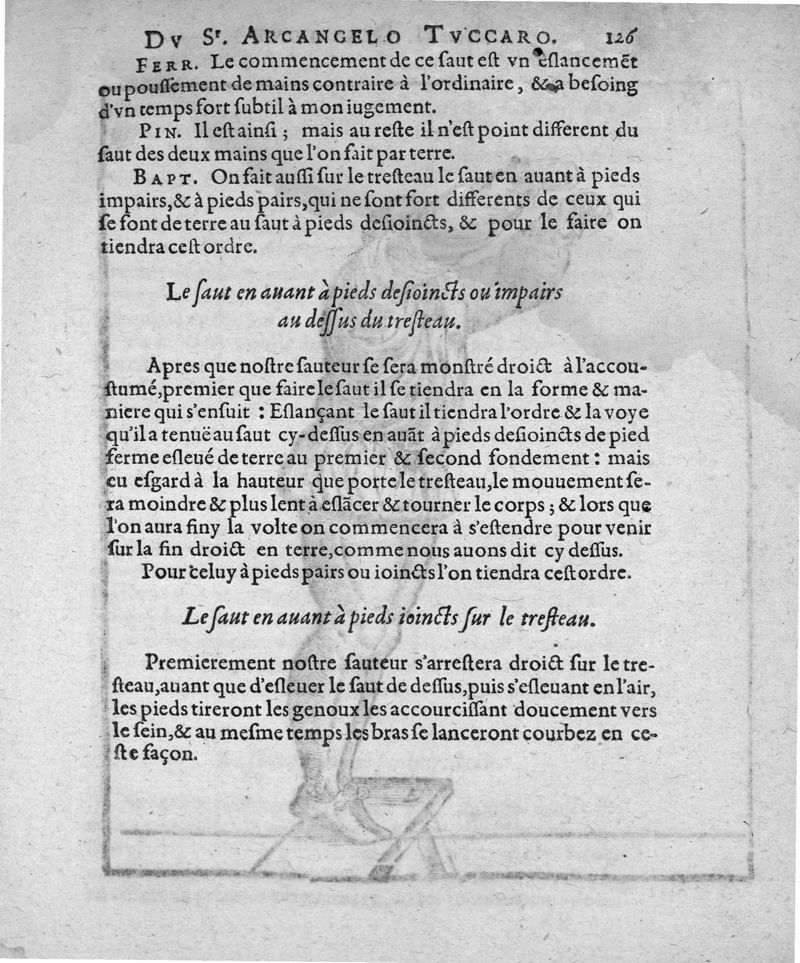 DV Sr. ARCANGELO TVCCARO. 126
FERR. Le commencement de ce ſaut eſt vn eſlancemēt
ou pouſſement de mains contraire à l'ordinaire, & a beſoing
d'vn temps fort ſubtil à mon iugement.
PIN. Il eſt ainſi ; mais au reſte il n'eſt point different du
ſaut des deux mains que l'on fait par terre.
BAPT. On fait auſſi ſur le treſteau le ſaut en auant à pieds
impairs,& à pieds pairs,qui ne ſont fort differents de ceux qui
ſe font de terre au ſaut à pieds deſioincts, & pour le faire on
tiendra ceſt ordre.
Le ſaut en auant à pieds deſioincts ou impairs
au deſſus du treſteau.
Apres que noſtre ſauteur ſe ſera monſtré droict à l'accou-
ſtumé,premier que faire le ſaut il ſe tiendra en la forme & ma-
niere qui s'enſuit : Eſlançant le ſaut il tiendra l'ordre & la voye
qu'il a tenuë au ſaut cy-deſſus en auãt à pieds deſioincts de pied
ferme eſleué de terre au premier & ſecond fondement : mais
eu eſgard à la hauteur que porte le treſteau,le mouuement ſe-
ra moindre & plus lent à eſlãcer & tourner le corps ; & lors que
l'on aura finy la volte on commencera à s'eſtendre pour venir
ſur la fin droict en terre,comme nous auons dit cy deſſus.
Pour celuy à pieds pairs ou ioincts l'on tiendra ceſt ordre.
Le ſaut en auant à pieds ioincts ſur le treſteau.
Premierement noſtre ſauteur s'arreſtera droict ſur le tre-
ſteau,auant que d'eſleuer le ſaut de deſſus,puis s'eſleuant en l'air,
les pieds tireront les genoux les accourciſſant doucement vers
le ſein,& au meſme temps les bras ſe lanceront courbez en ce-
ſte façon.